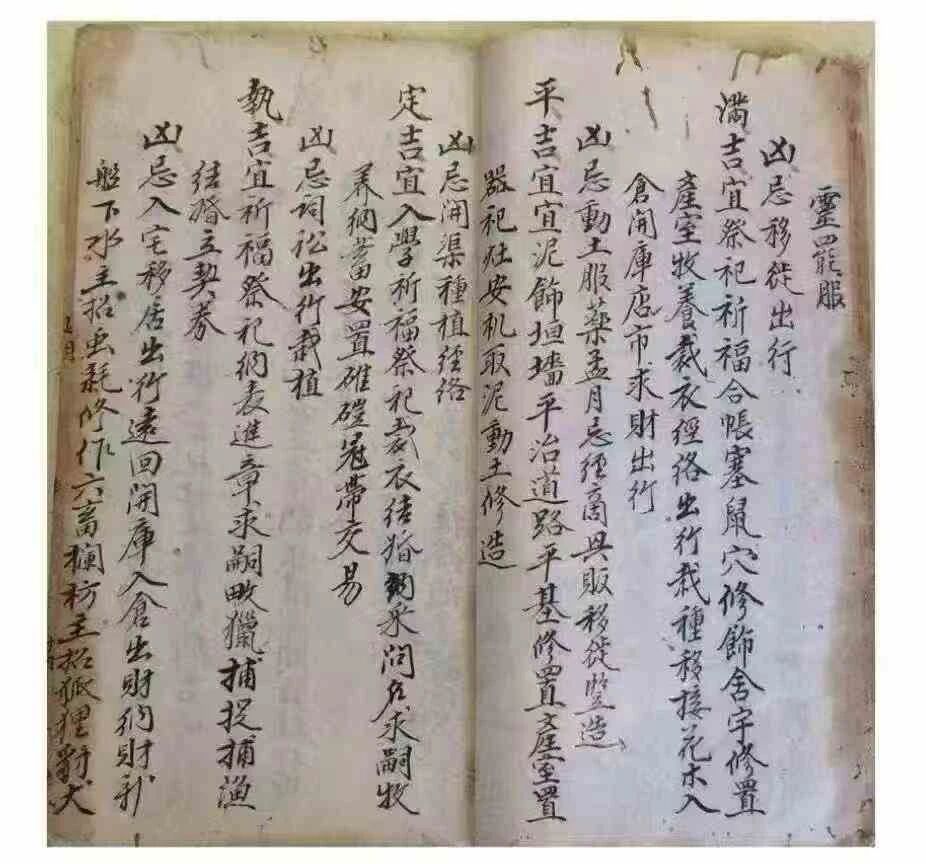 靈罷服
凶忌移徙出行
満吉宜祭祀祈福合帳塞鼠穴修飾舍宇修置
產室牧養裁衣經絡出行栽種移接花木入
倉開庫店市求財出行
凶忌動土服藥孟月忌經商興販移徙豎造
平吉宜宜泥飾垣墻平治道路平基修置產室置
器祀灶安机取泥動土修造
凶忌開渠種植经络
定吉宜入學祈福祭祀裁衣结婚納采問名求嗣牧
养納畜安置碓磑冠帶交易
凶忌词讼出行栽植
執吉宜祈福祭祀納表進章求嗣畋獵捕捉捕漁
结婚立契券
凶忌入宅移居出行遠回開庫入倉出財納財新
船下水主招虫耗修作六畜欄枋主招狐狸豺犬